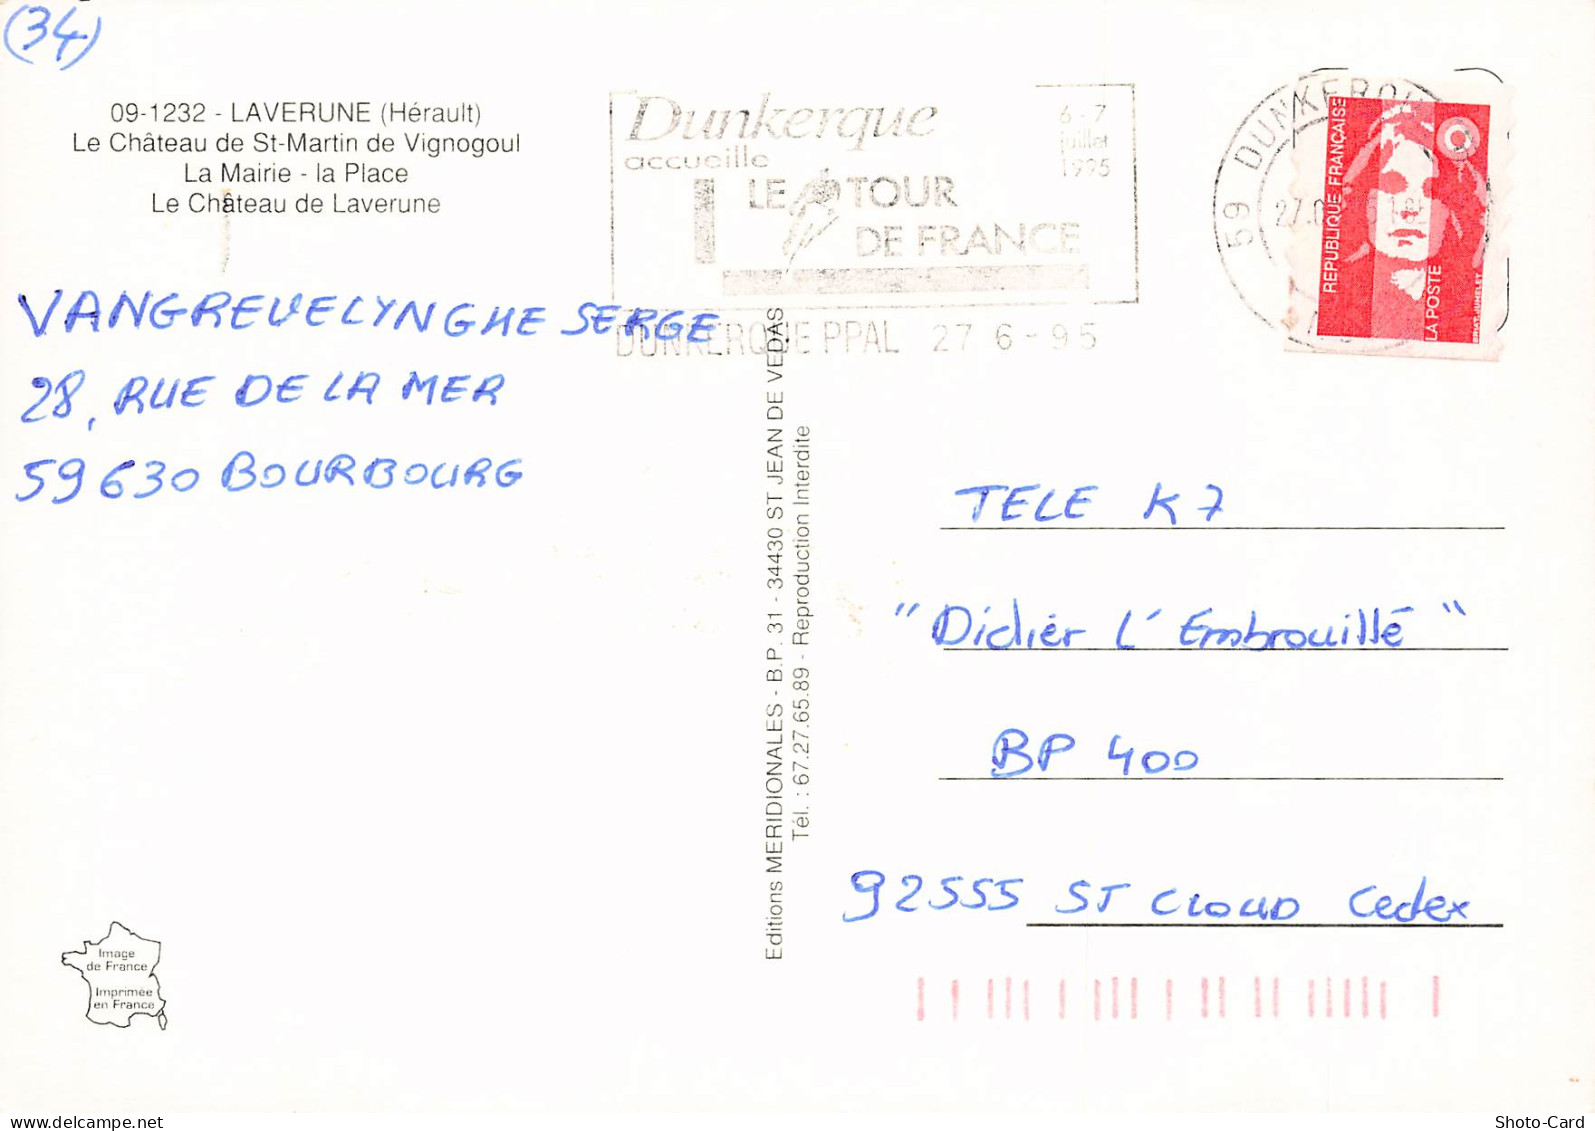 (34)
09-1232 - LAVERUNE (Hérault)
Le Château de St-Martin de Vignogoul
La Mairie - la Place
Le Château de Laverune
Dunkerque
accueille
LE TOUR
DE FRANCE
6-7
juillet
1995
DUNKERQUE PPAL 27 6-95
59 DUNKERQU
27.
REPUBLIQUE FRANÇAISE
LA POSTE
VANGREVELYNGHE SERGE
28, RUE DE LA MER
59630 BOURBOURG
Editions MERIDIONALES - B.P. 31 - 34430 ST JEAN DE VEDAS
Tél. : 67.27.65.89 - Reproduction Interdite
TELE K7
"Didier L'Embrouillé"
BP 400
92555 ST CLOUD Cedex
Image
de France
Imprimée
en France
Shoto-Card